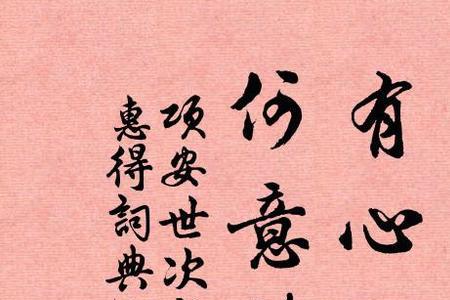 有心
何意
項安世次
惠得詞典